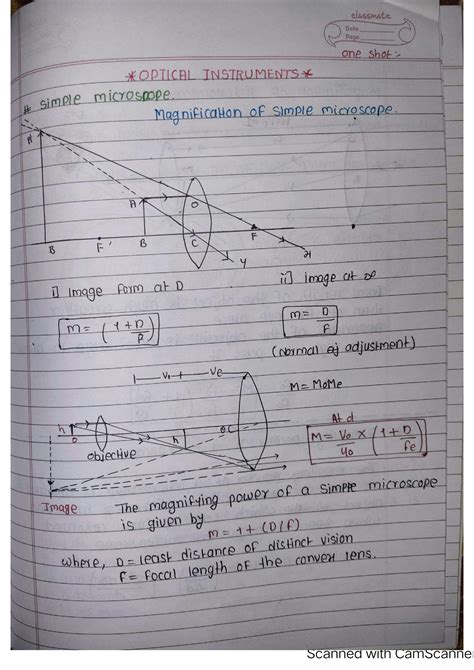 classmate
Date
Page
one shot:-
*OPTICAL INSTRUMENTS*
* simple microscope.
Magnification of simple microscope.
A'
A
O
B
F'
B
C
F
y
i] Image form at D
ii] image at ∞
m = (1+D/F)
m = D/F
(normal adjustment)
Vo
Ve
M = MoMe
h
O
h
objective
At d
M = Vo/uo × (1+D/fe)
Image
The magnifying power of a simple microscope
is given by
m = 1 + (D/f)
where, D = least distance of distinct vision
f = focal length of the convex lens.
Scanned with CamScanne